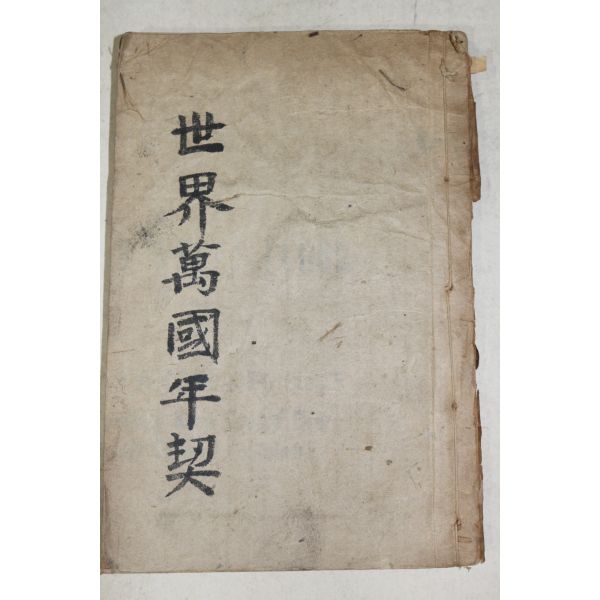 世界萬國年契